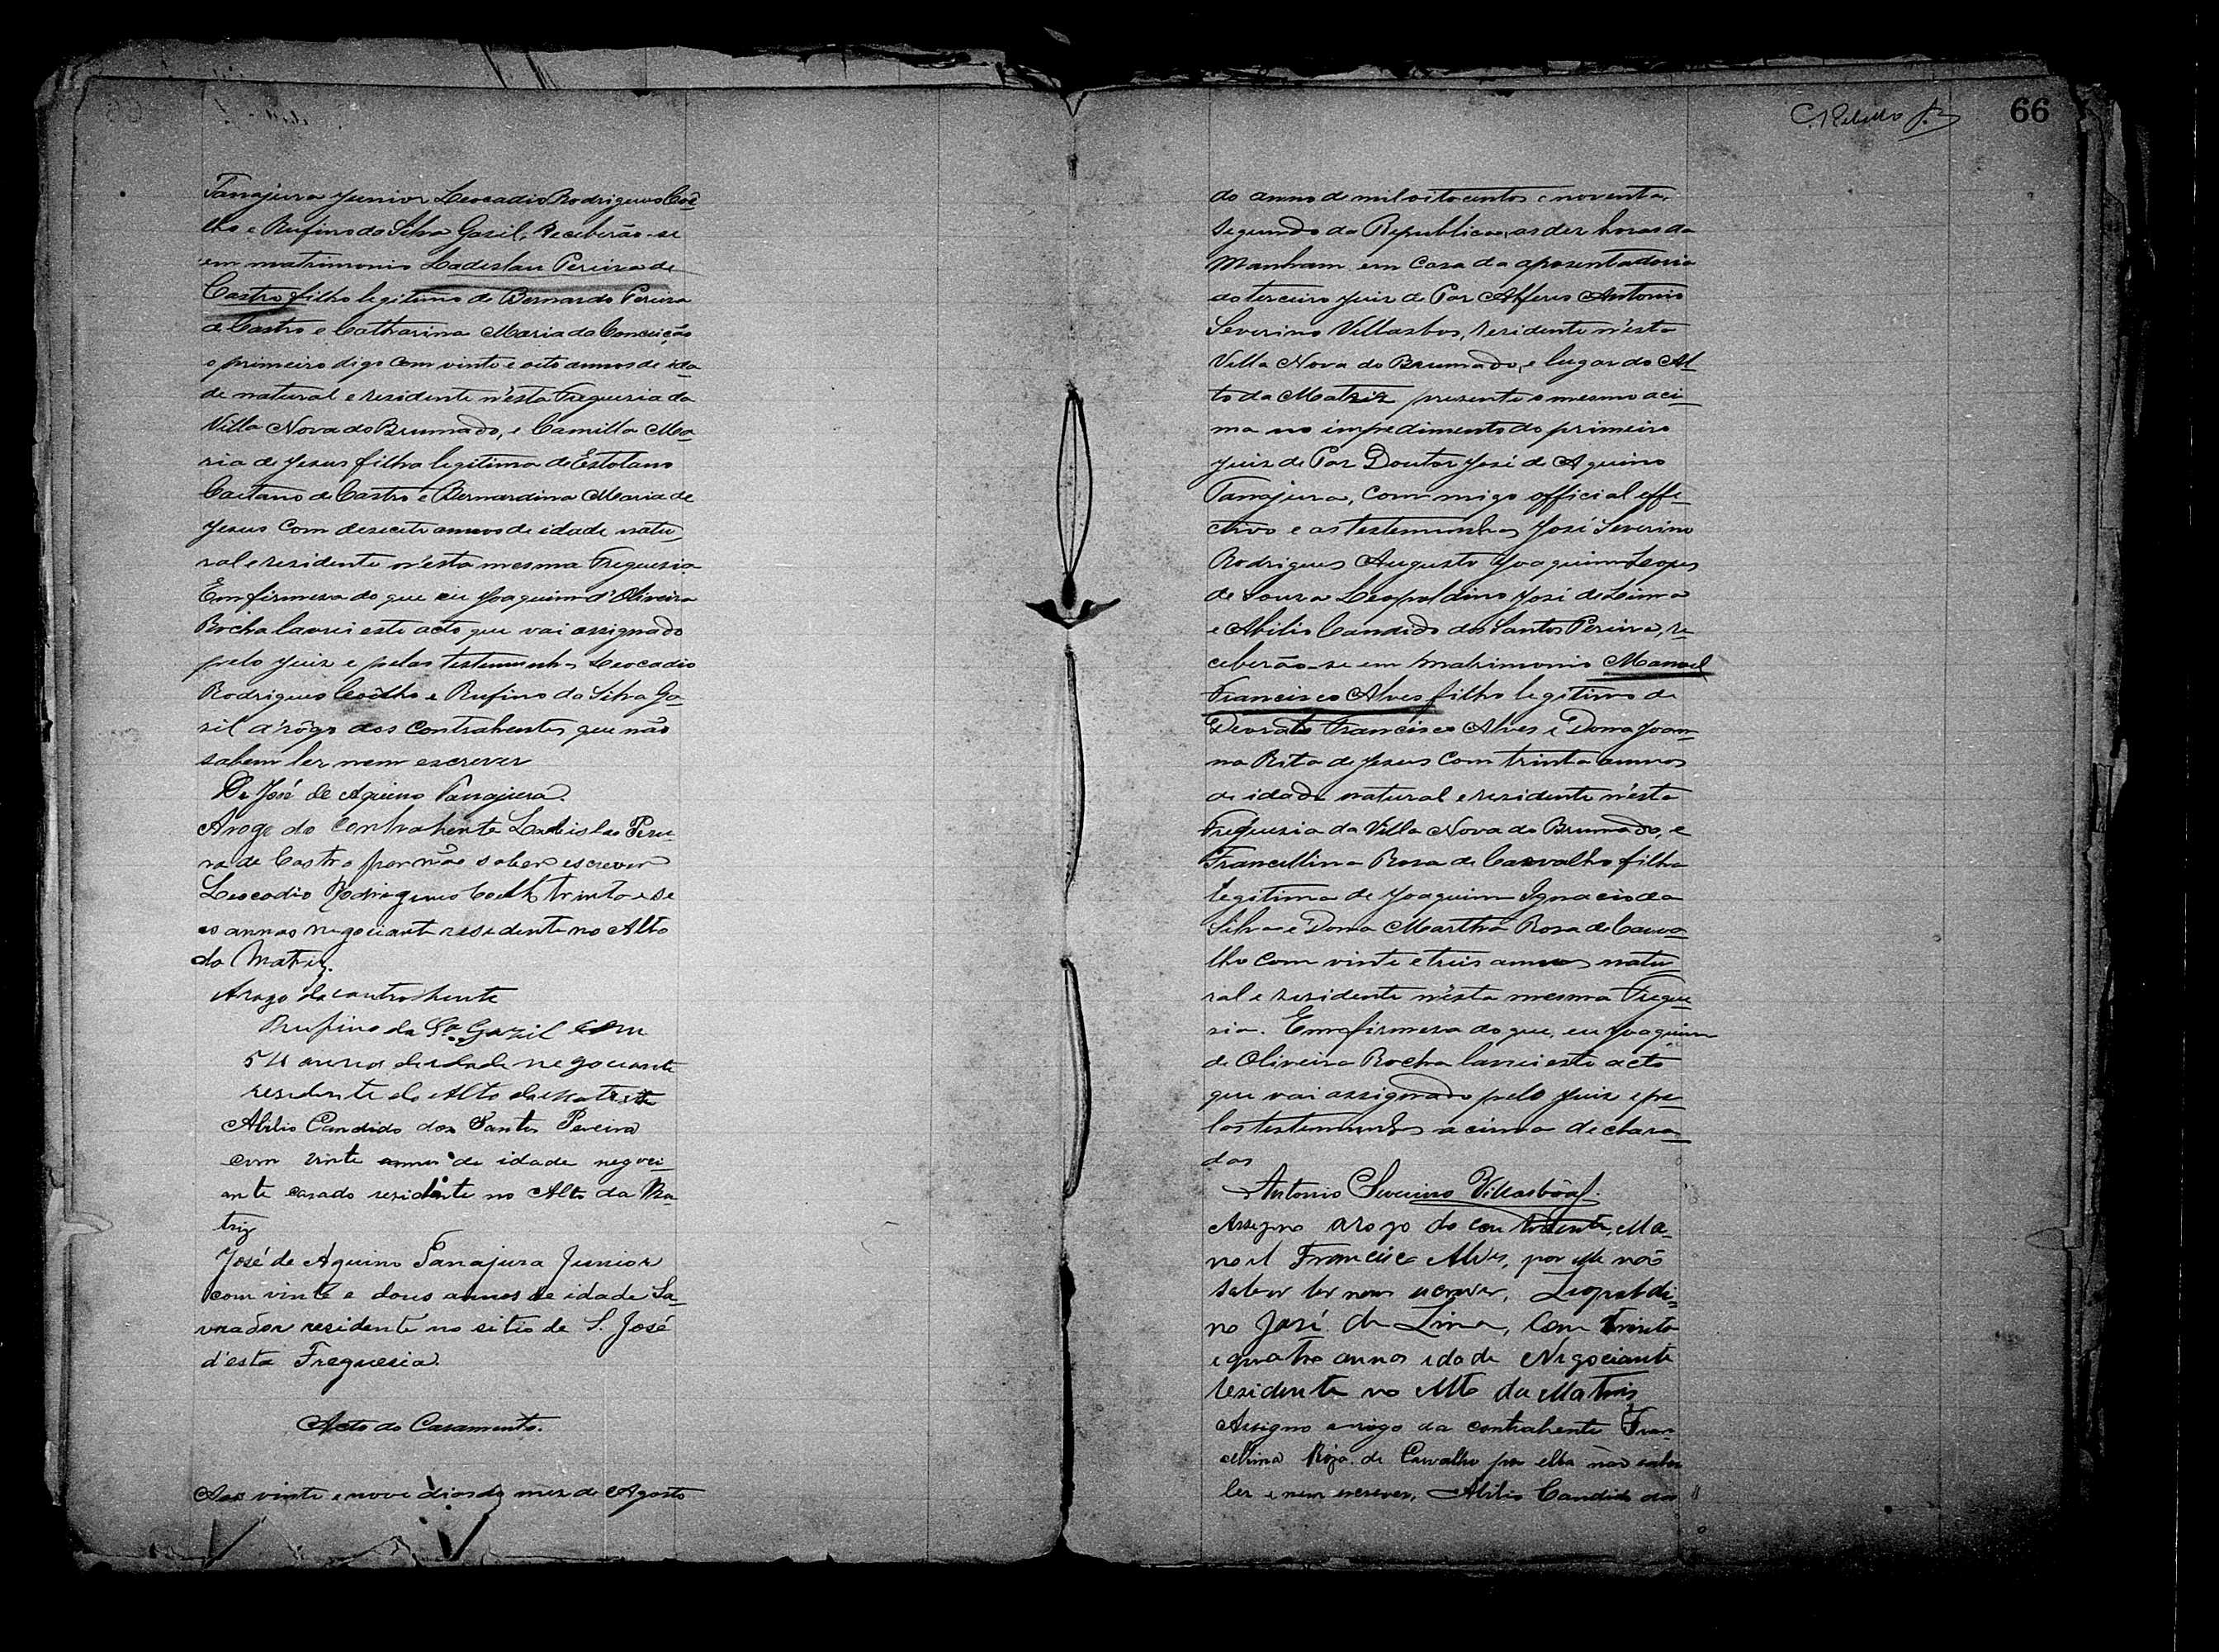 Tanajura Junior Leocadio Rodrigues Coê
lho e Rufino da Silva Gazil, Receberão-se
em matrimonio Ladislau Pereira de
Castro filho legitimo de Bernardo Pereira
de Castro e Catharina Maria da Conceição
o primeiro digo com vinte e oito annos de ida
de natural e residente n'esta Freguesia da
Villa Nova do Brumado, e Camilla Ma
ria de Jesus filha legitima de Estolano
Caetano de Castro e Bernardina Maria de
Jesus com desecete annos de idade natu
ral e residente n'esta mesma Freguesia
Em firmesa do que eu Joaquim d'Oliveira
Rocha lavrei este acto que vai assignado
pelo Juiz e pelas testemunhas Leocadio
Rodrigues Coêlho e Rufino da Silva Ga
zil a rôgo dos contrahentes que não
sabem ler nem escrever
Dr José de Aquino Tanajura.
Arogo do contrahente Ladislao Perei
ra de Castro por não saber escrever
Leocadio Rodrigues Coelho trinta e se
es annos negociante residente no Alto
da Matriz.
Arogo da contrahente
Rufino da Sa Gazil com
54 annos de idade negociante
residente do Alto da Matris
Abilio Candido dos Santos Pereira
com vinte annos de idade negoci-
ante casado residente no Alto da Ma-
triz
José de Aquino Tanajura Junior
com vinte e dous annos de idade La-
vrador residente no sitio de S. José
d'esta Freguesia.
Acto do Casamento.
Aos vinte e nove dias do mez de Agosto
66
do anno de mil oito centos e noventa,
Segundo da Republica, as dez horas da
Manham em Casa da aposentadoria
do terceiro Juiz de Paz Alferes Antonio
Severino Villasboas, residente n'esta
Villa Nova do Brumado, e lugar do Al
to da Matriz presente o mesmo aci-
ma no impedimento do primeiro
Juiz de Paz Doutor José de Aquino
Tanajura, commigo official effe
ctivo e as testemunhas José Severino
Rodrigues Augusto Joaquim Lopes
de Souza Leopoldino José de Lima
e Abilio Candido dos Santos Pereira, re
ceberão-se em matrimonio Manoel
Francisco Alves filho legitimo de
Deorato Francisco Alves e Dona Joan
na Rita de Jesus com trinta annos
de idade natural e residente n'esta
Freguesia da Villa Nova do Brumado, e
Francellina Rosa de Carvalho filha
legitima de Joaquim Ignacio da
Silva e Dona Martha Rosa de Carva
lho com vinte e treis annos natu
ral e residente n'esta mesma Fregue
sia. Em firmesa do que, eu Joaquim
de Oliveira Rocha lavrei este acto
que vai assignado pelo Juiz e pe-
las testemunhas acima declara-
das
Antonio Severino Villasbôas.
Assigno arogo do contrahente, Ma-
noel Francisco Alves, por elle não
saber ler nem escrever, Leopoldi-
no José de Lima, com trinta
e quatro annos idade Negociante
residente no Alto da Matris
Assigno arogo da contrahente Fran-
cellina Roza de Carvalho por ella não saber
ler e nem escrever, Abilio Candido dos